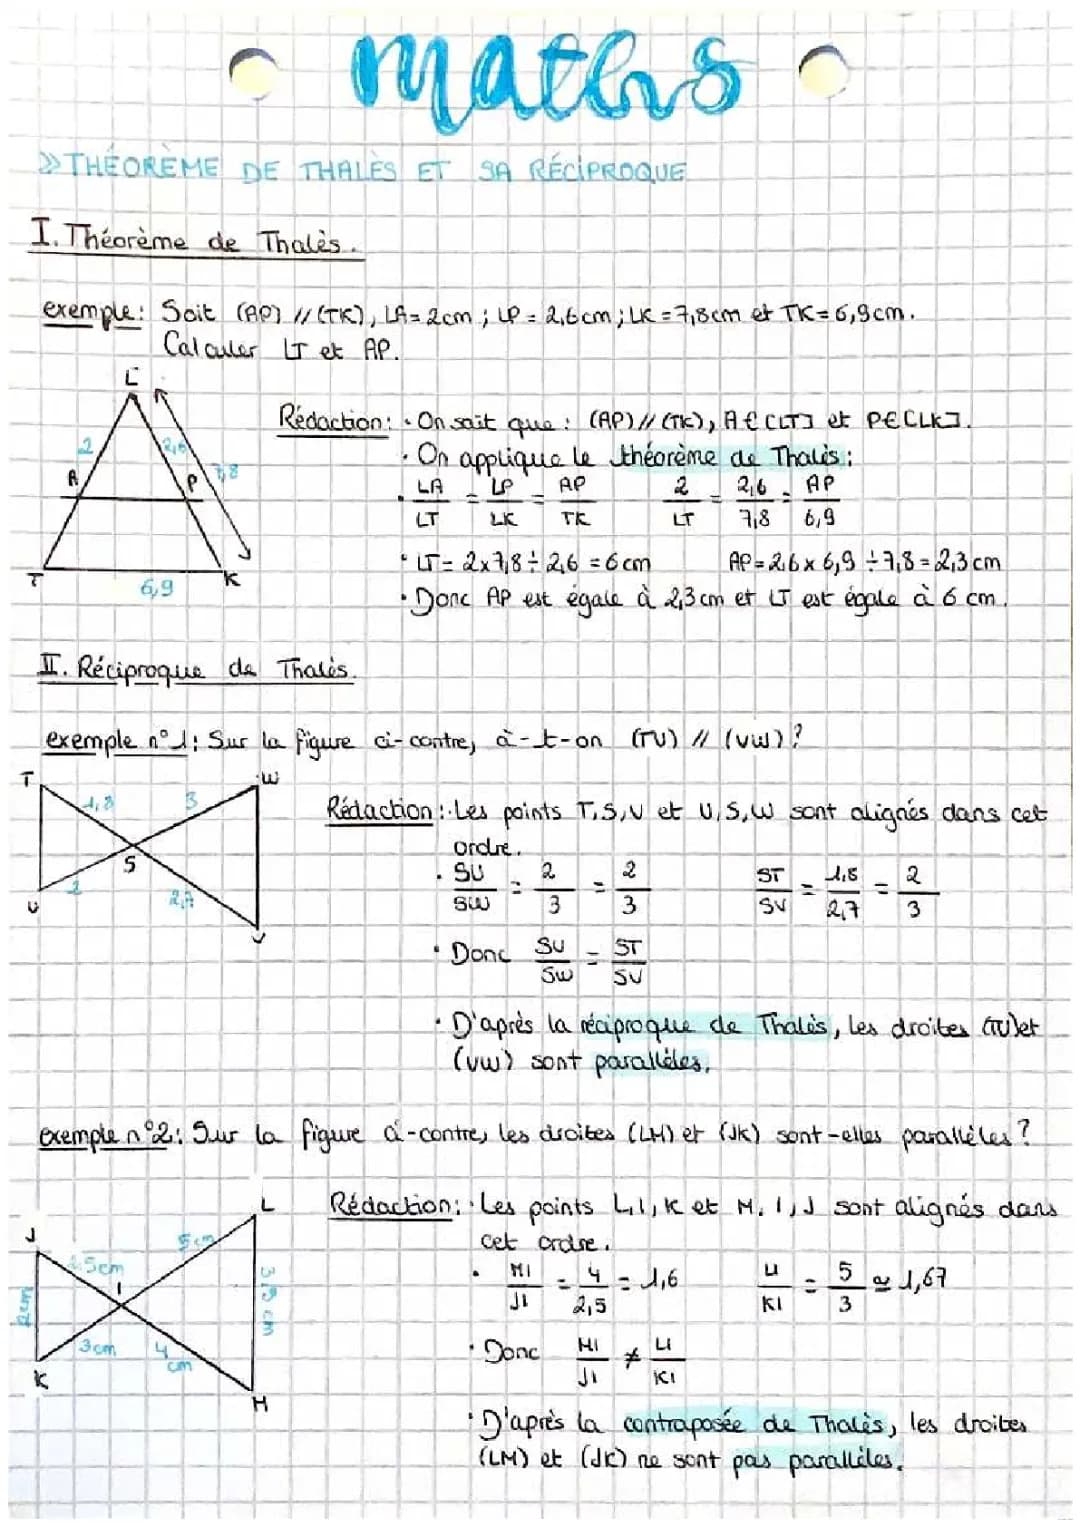 maths
>> THÉORÈME DE THALÈS ET SA RÉCIPROQUE
I. Théorème de Thalès.
exemple: Soit (AP) // (TK), LA = 2cm ; LP = 2,6cm ; LK = 7,8cm et TK = 6,9cm.
Calculer LT et AP.
L
2 2,6 7,8
A P
T K
6,9
Rédaction: · On sait que : (AP) // (TK), A ∈ [LT] et P ∈ [LK].
· On applique le théorème de Thalès :
· LA/LT = LP/LK = AP/TK 2/LT = 2,6/7,8 = AP/6,9
· LT = 2 x 7,8 ÷ 2,6 = 6 cm AP = 2,6 x 6,9 ÷ 7,8 = 2,3 cm
· Donc AP est égale à 2,3 cm et LT est égale à 6 cm.
II. Réciproque de Thalès.
exemple n°1: Sur la figure ci-contre, à-t-on (TU) // (VW) ?
T W
1,8 3
S
2 2,7
U V
Rédaction : · Les points T,S,V et U,S,W sont alignés dans cet
ordre.
· SU/SW = 2/3 = 2/3 ST/SV = 1,8/2,7 = 2/3
· Donc SU/SW = ST/SV
· D'après la réciproque de Thalès, les droites (TU) et
(VW) sont parallèles.
exemple n°2: Sur la figure ci-contre, les droites (LM) et (JK) sont-elles parallèles ?
J L
2,5cm 5cm
2cm I 3,5 cm
3cm 4 cm
K M
Rédaction: · Les points L,I,K et M,I,J sont alignés dans
cet ordre.
· MI/JI = 4/2,5 = 1,6 LI/KI = 5/3 ≃ 1,67
· Donc MI/JI ≠ LI/KI
· D'après la contraposée de Thalès, les droites
(LM) et (JK) ne sont pas parallèles.